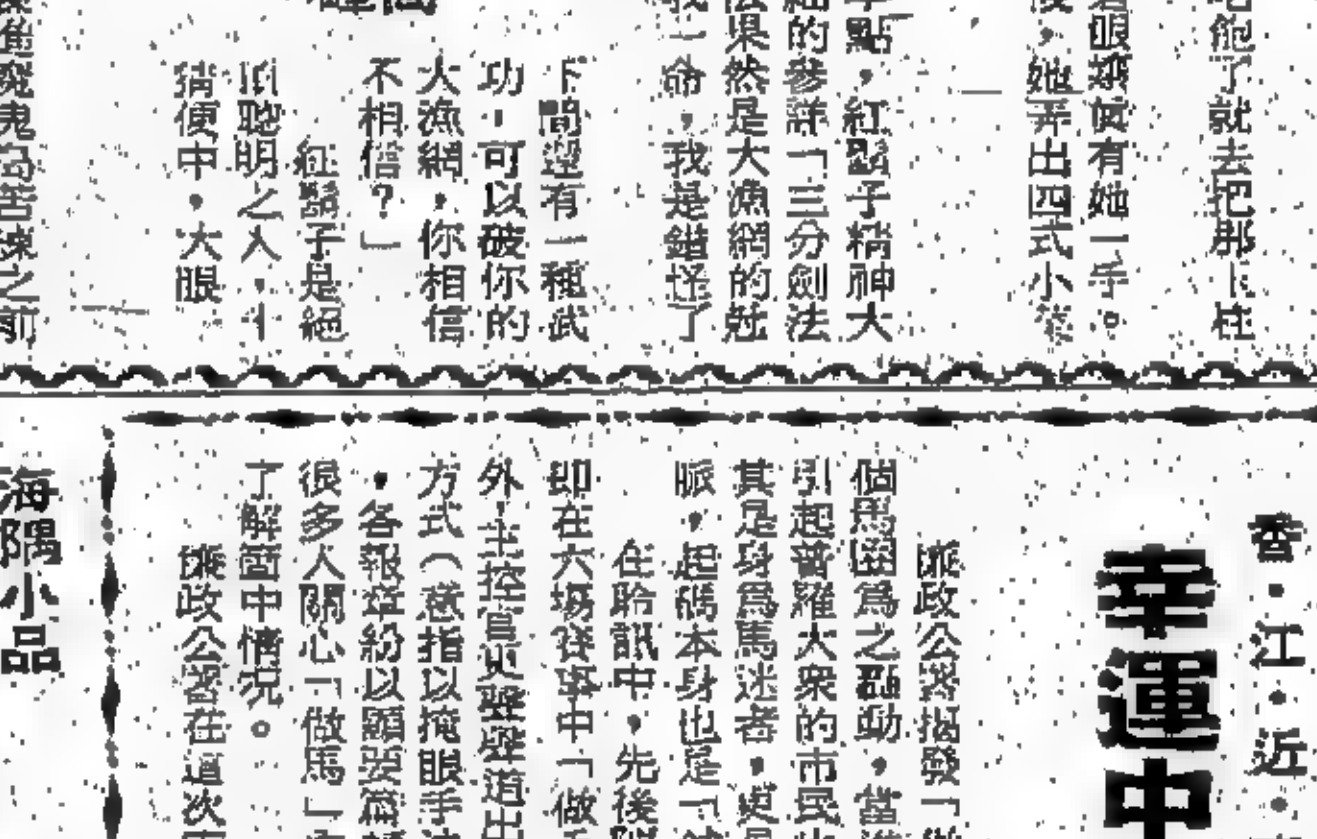 吃飽了就去把那卡柱
有她一手。
，她弄出四式小菜
點，紅鬍子精神大
細的參詳「三分劍法
法果然是大漁網的尅
我一命，我是錯怪了
下間還有一種武
功，可以破你的
大漁網，你相信
不相信？」
紅鬍子是絕
頂聰明之人，十
猜便中，大眼
魔鬼
苦練之前
香・江・近・
幸運中
廉政公署揭發「做
個馬圈為之轟動，當
引起普羅大衆的市民
其是身為馬迷者，更是
脈，起碼本身也是「
在聆訊中，先後
即在六場賽事中「做
外，主控官更鑿鑿道出
方式（意指以掩眼手法
，各報章紛以顯要篇
很多人關心「做馬」
了解箇中情況。
廉政公署在這次
海隅小品